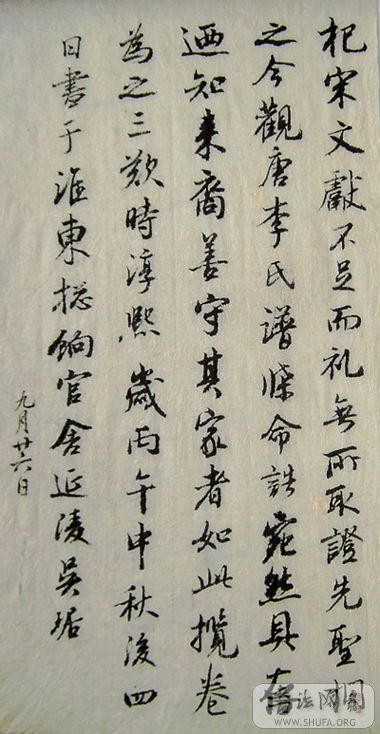 杞宋文獻不足而礼無所取證先聖惘
之今觀唐李氏譜牒命誥宛然具存
迺知来裔善守其家者如此攬卷
為之三歎時淳熙歲丙午中秋後四
日書于淮東揔餉官舍延陵吳琚
九月廿六日
书法网
WWW.SHUFA.ORG